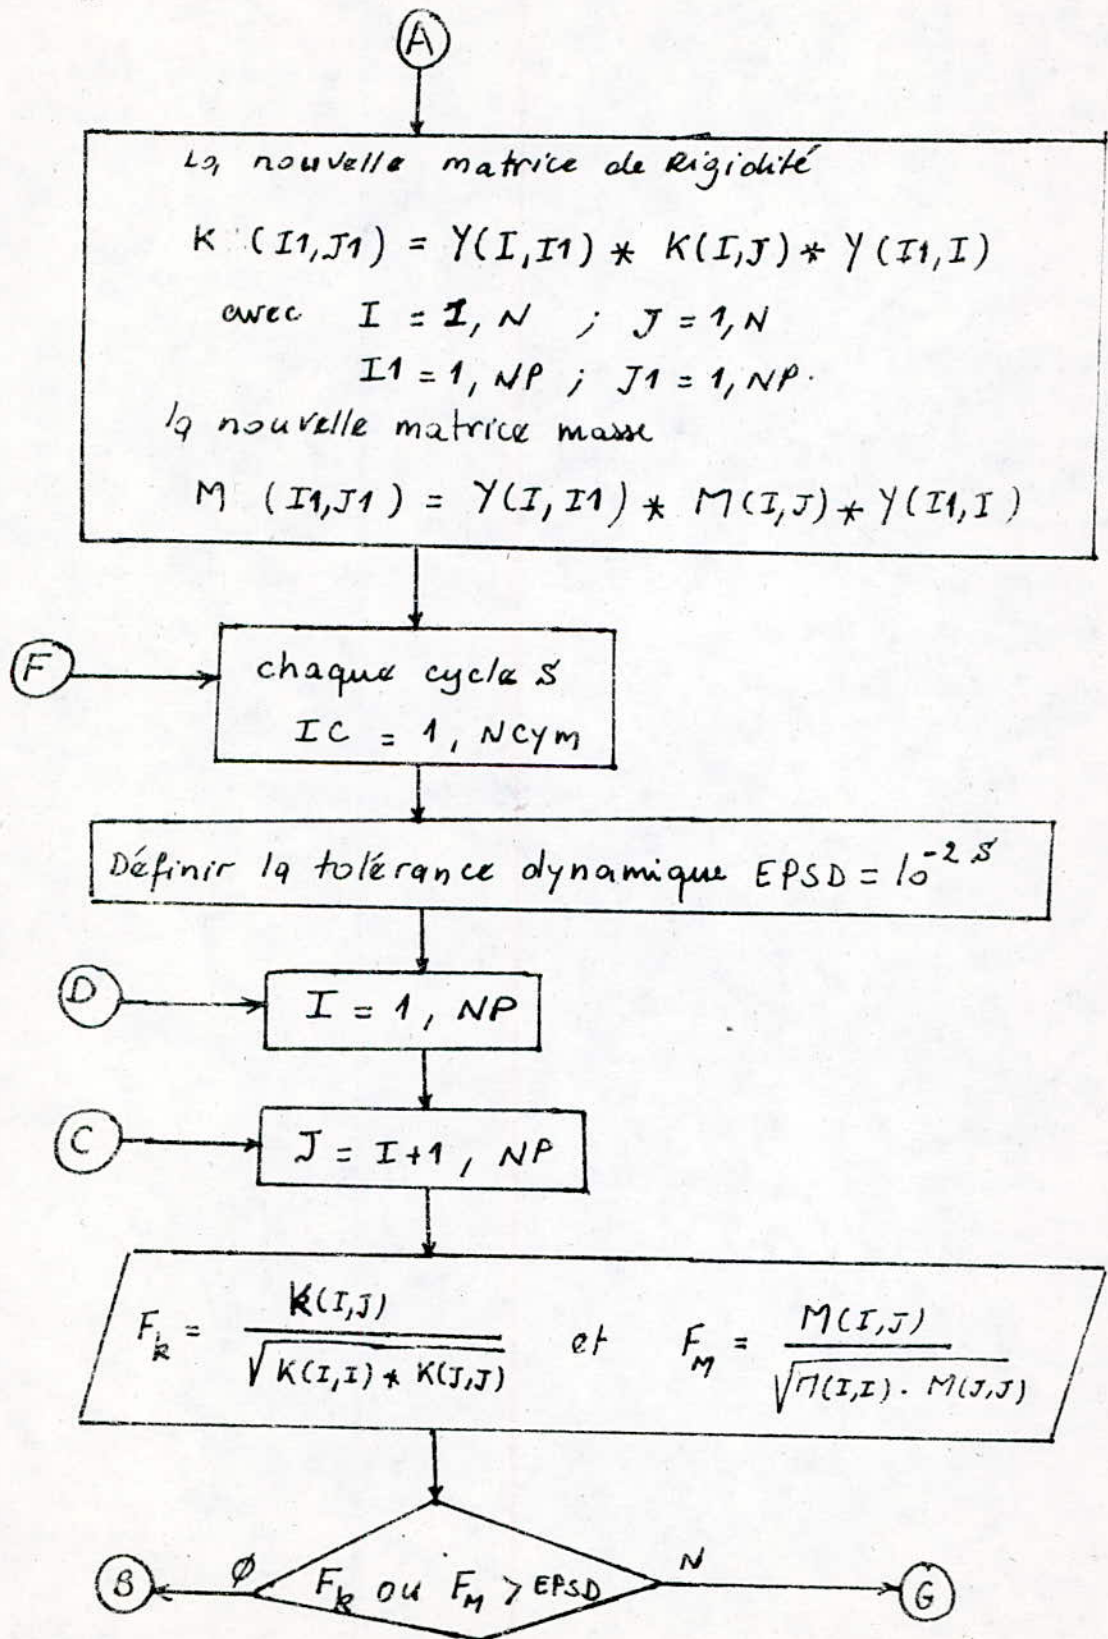 A
La nouvelle matrice de Rigidité
K (I1,J1) = Y(I,I1) * K(I,J) * Y(I1,I)
avec I = 1, N ; J = 1, N
I1 = 1, NP ; J1 = 1, NP.
la nouvelle matrice masse
M (I1,J1) = Y(I,I1) * M(I,J) * Y(I1,I)
F
chaque cycle S
IC = 1, NCYM
Définir la tolérance dynamique EPSD = 10^{-2 S}
D
I = 1, NP
C
J = I+1, NP
F_k = K(I,J) / √(K(I,I) * K(J,J)) et F_M = M(I,J) / √(M(I,I) . M(J,J))
B Ø F_k ou F_M > EPSD N G